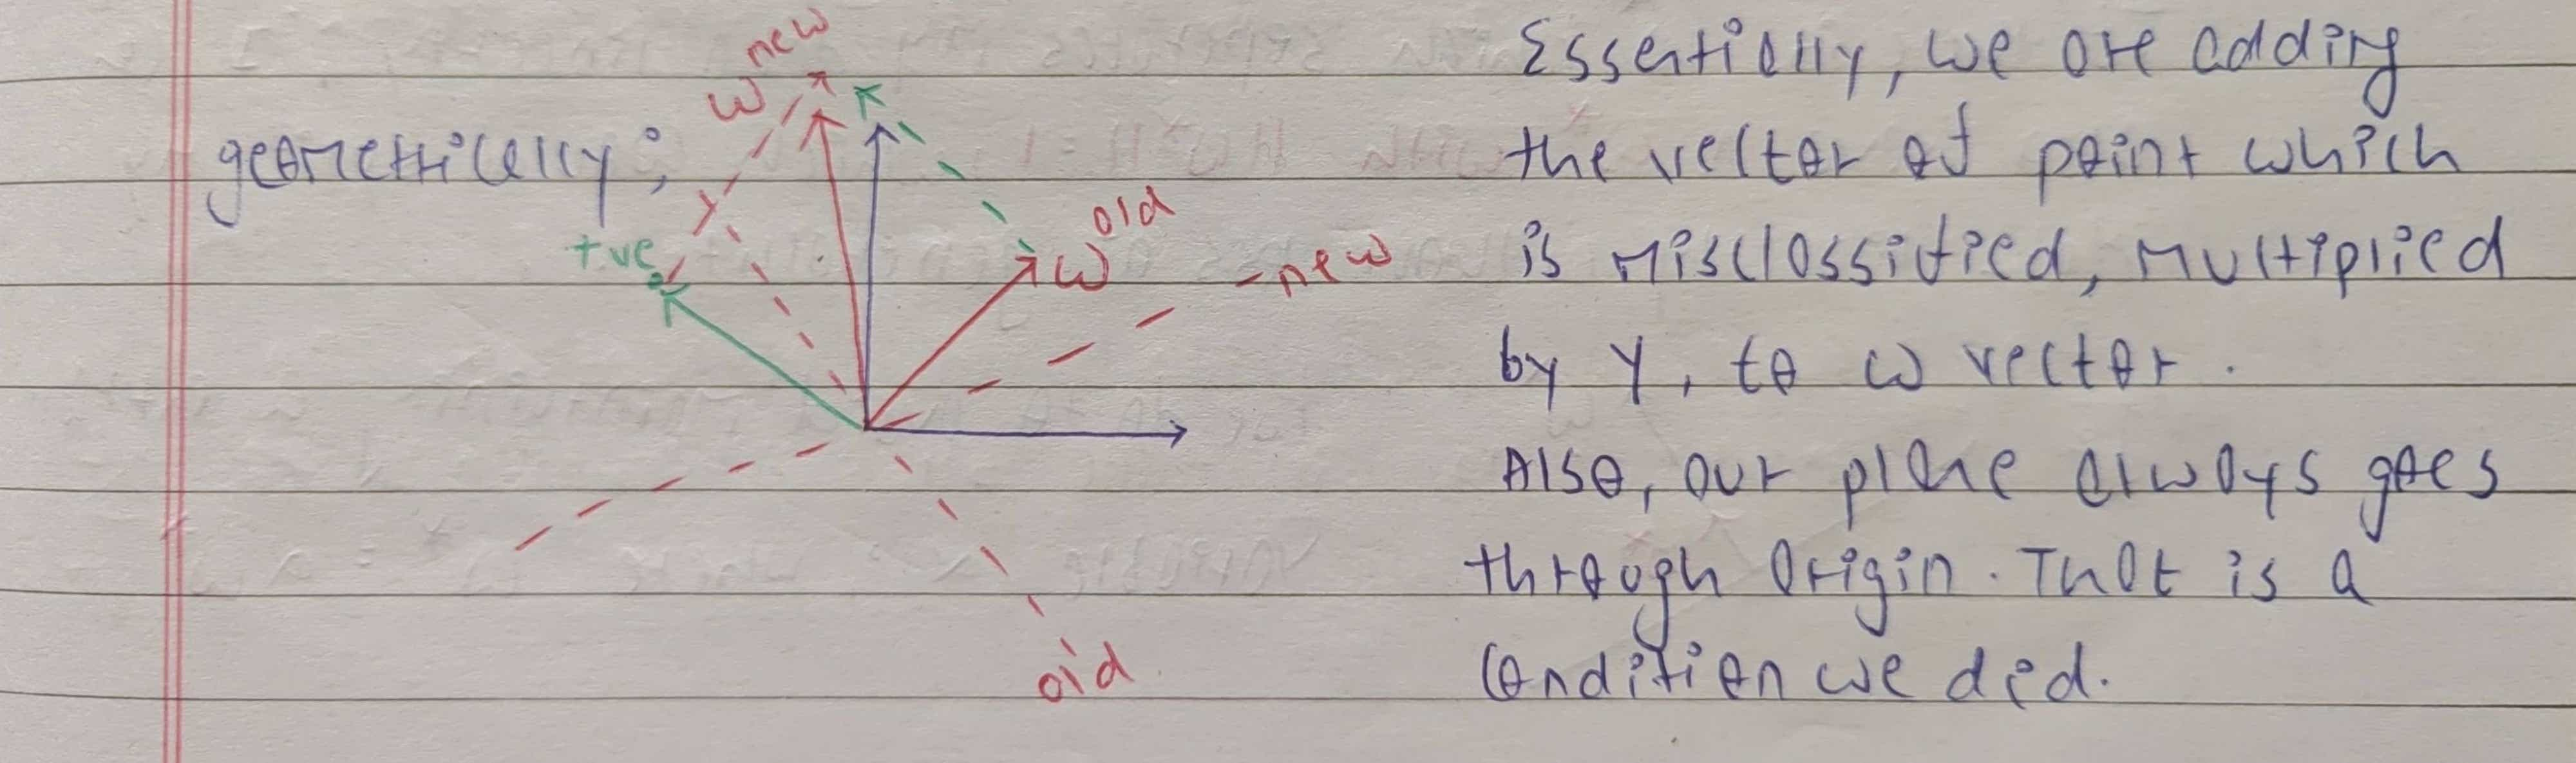 geometrically;
w new
+ve
w old
new
old
Essentially, we are adding
the vector of point which
is misclassified, multiplied
by y, to w vector.
Also, our plane always goes
through origin. That is a
condition we did.